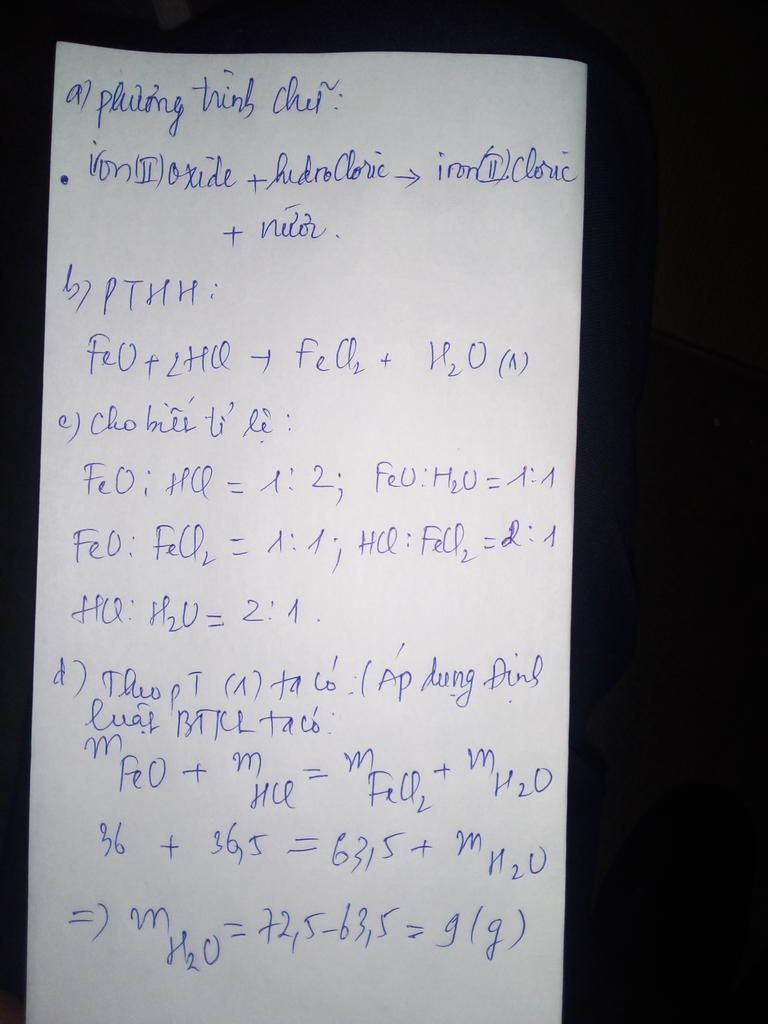 a) phương trình chữ:
• iron(II) oxide + hidrocloric → iron(II).Cloric
+ nước.
b) PTHH:
FeO + 2HCl → FeCl₂ + H₂O (1)
c) Cho biết tỉ lệ:
FeO : HCl = 1 : 2; FeO : H₂O = 1 : 1
FeO : FeCl₂ = 1 : 1; HCl : FeCl₂ = 2 : 1
HCl : H₂O = 2 : 1.
d) Theo pT (1) ta có : (Áp dụng Định
luật BTKL ta có:
m FeO + m HCl = m FeCl₂ + m H₂O
36 + 36,5 = 63,5 + m H₂O
=) m H₂O = 72,5 - 63,5 = 9 (g)